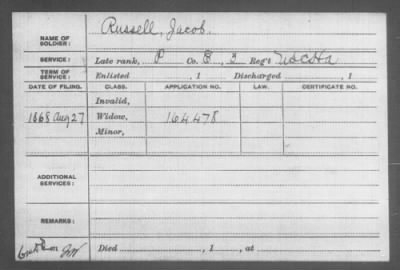 NAME OF SOLDIER: Russell, Jacob.
SERVICE: Late rank, P Co. E, 3 Reg't U S C H A
TERM OF SERVICE: Enlisted , 1 Discharged , 1
DATE OF FILING. CLASS. APPLICATION NO. LAW. CERTIFICATE NO.
Invalid,
1868 Aug 27 Widow, 164478
Minor,
ADDITIONAL SERVICES:
REMARKS:
Died , 1 , at